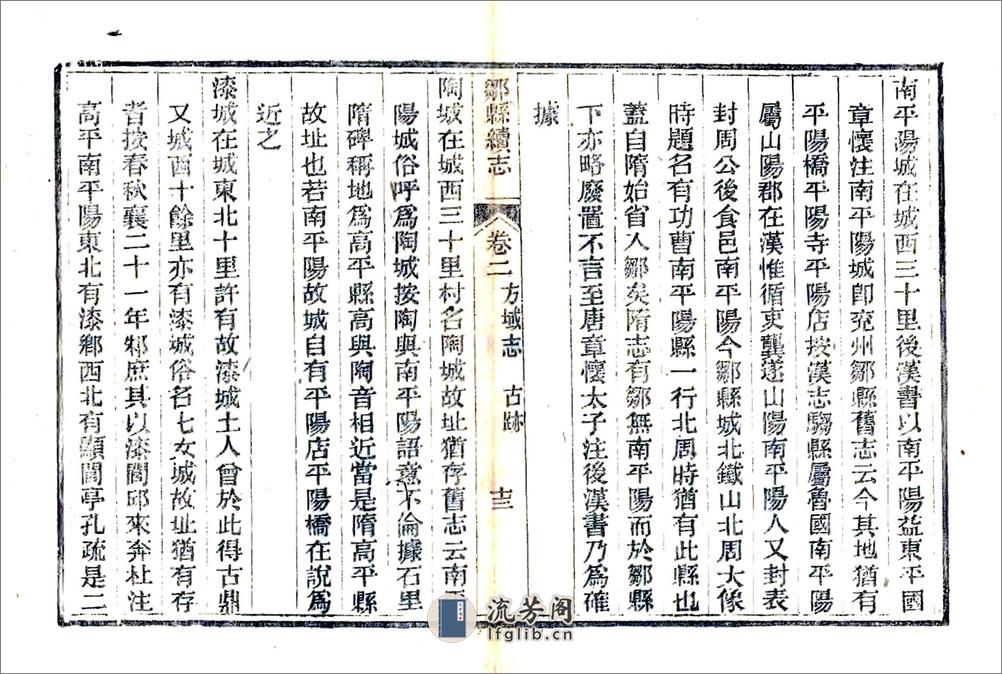 南平陽城在城西三十里後漢書以南平陽益東平國
章懷注南平陽城即兖州鄒縣舊志云今其地猶有
平陽橋平陽寺平陽店按漢志騶縣屬魯國南平陽
屬山陽郡在漢惟循吏龔遂山陽南平陽人又封表
封周公後食邑南平陽今鄒縣城北鐵山北周大像
時題名有功曹南平陽縣一行北周時猶有此縣也
蓋自隋始省入鄒矣隋志有鄒無南平陽而於鄒縣
下亦略廢置不言至唐章懷太子注後漢書乃爲確
據
鄒縣續志 卷二 方域志 古跡 十三
陶城在城西三十里村名陶城故址猶存舊志云南平
陽城俗呼爲陶城按陶與南平陽語意不倫據石里
隋碑稱地爲高平縣高與陶音相近當是隋高平縣
故址也若南平陽故城自有平陽店平陽橋在說爲
近之
漆城在城東北十里許有故漆城土人曾於此得古鼎
又城西十餘里亦有漆城俗名七女城故址猶有存
者按春秋襄二十一年邾庶其以漆閭邱來奔杜注
高平南平陽東北有漆鄉西北有顯閭亭孔疏是二
流芳阁
lfglib.cn